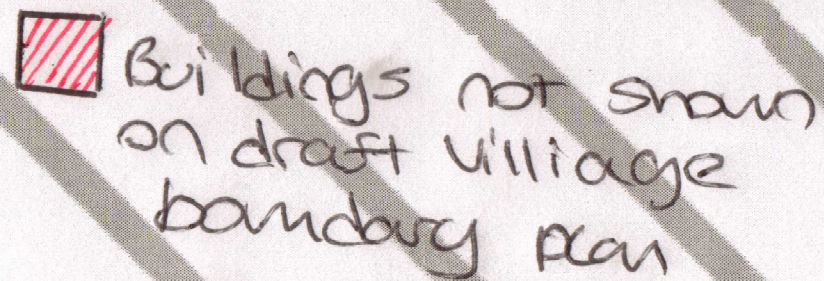 Buildings not shown
on draft Villiage
boundary plan